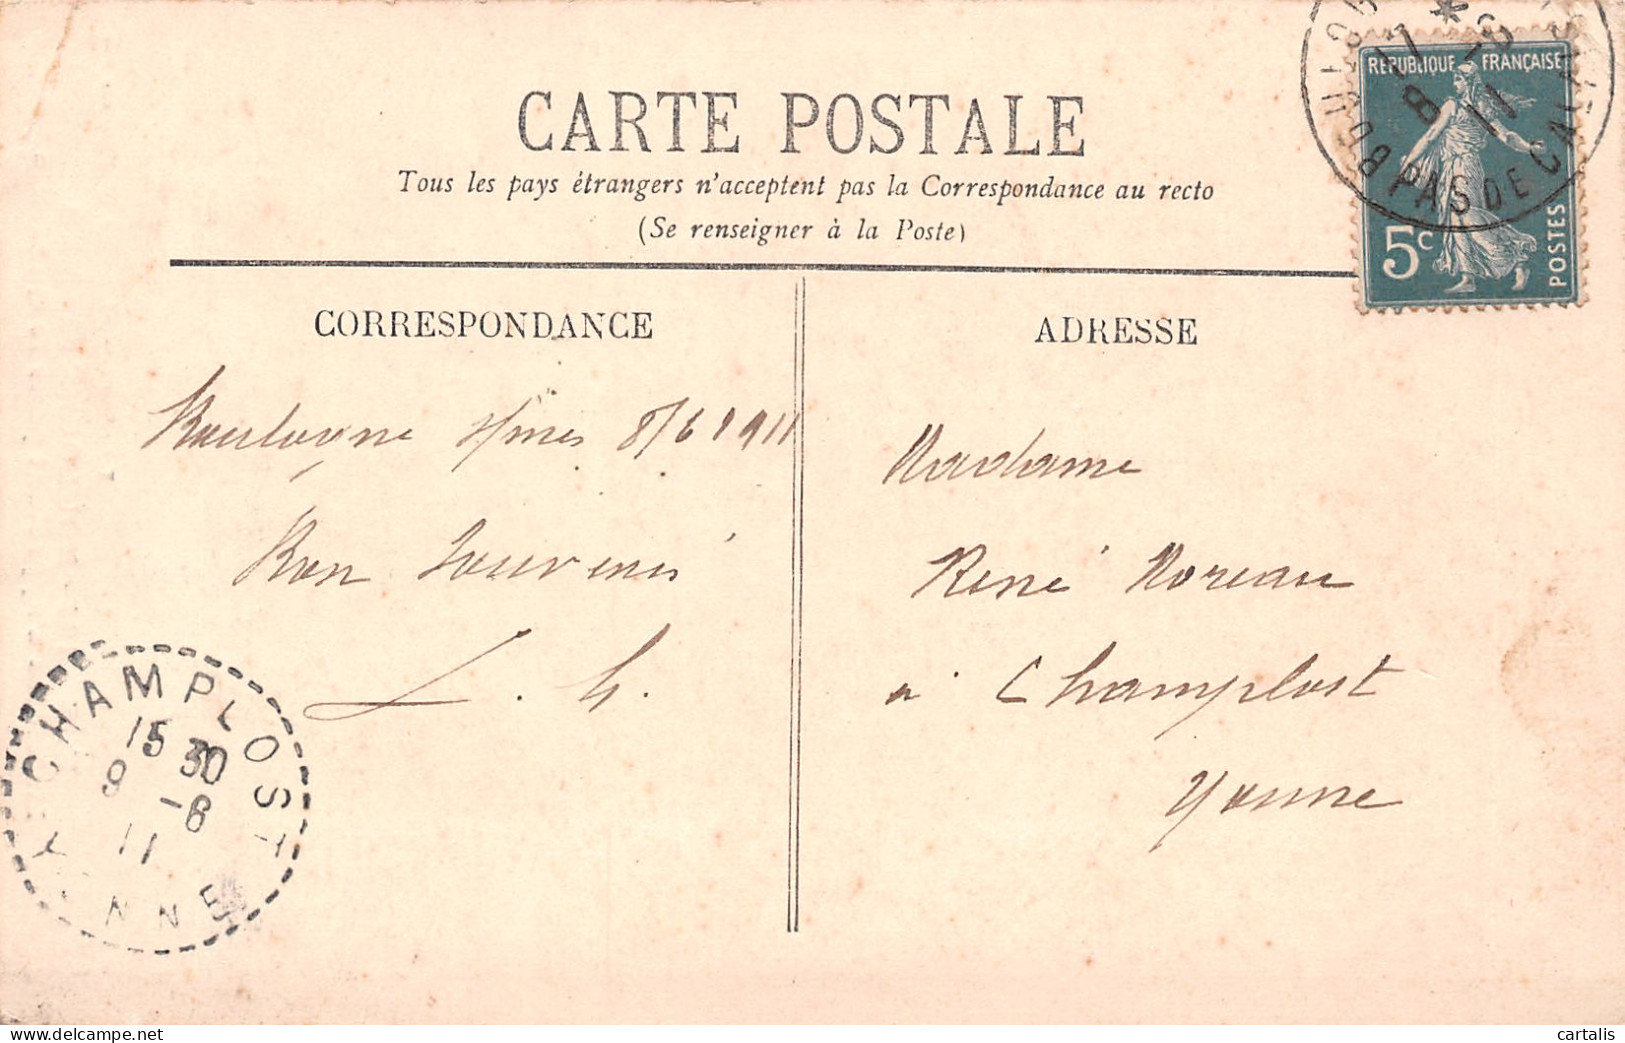 CARTE POSTALE
Tous les pays étrangers n'acceptent pas la Correspondance au recto
(Se renseigner à la Poste)
RÉPUBLIQUE FRANÇAISE
5c
POSTES
PAS DE CALAIS
8 -6
11
CORRESPONDANCE
Boulogne s/mer 8/6 1911
Bon Souvenir
L. h.
CHAMPLOST
15 30
9 -6
11
YONNE
ADRESSE
Madame
René Moreau
à Champlost
Yonne
delcampe.net
cartalis